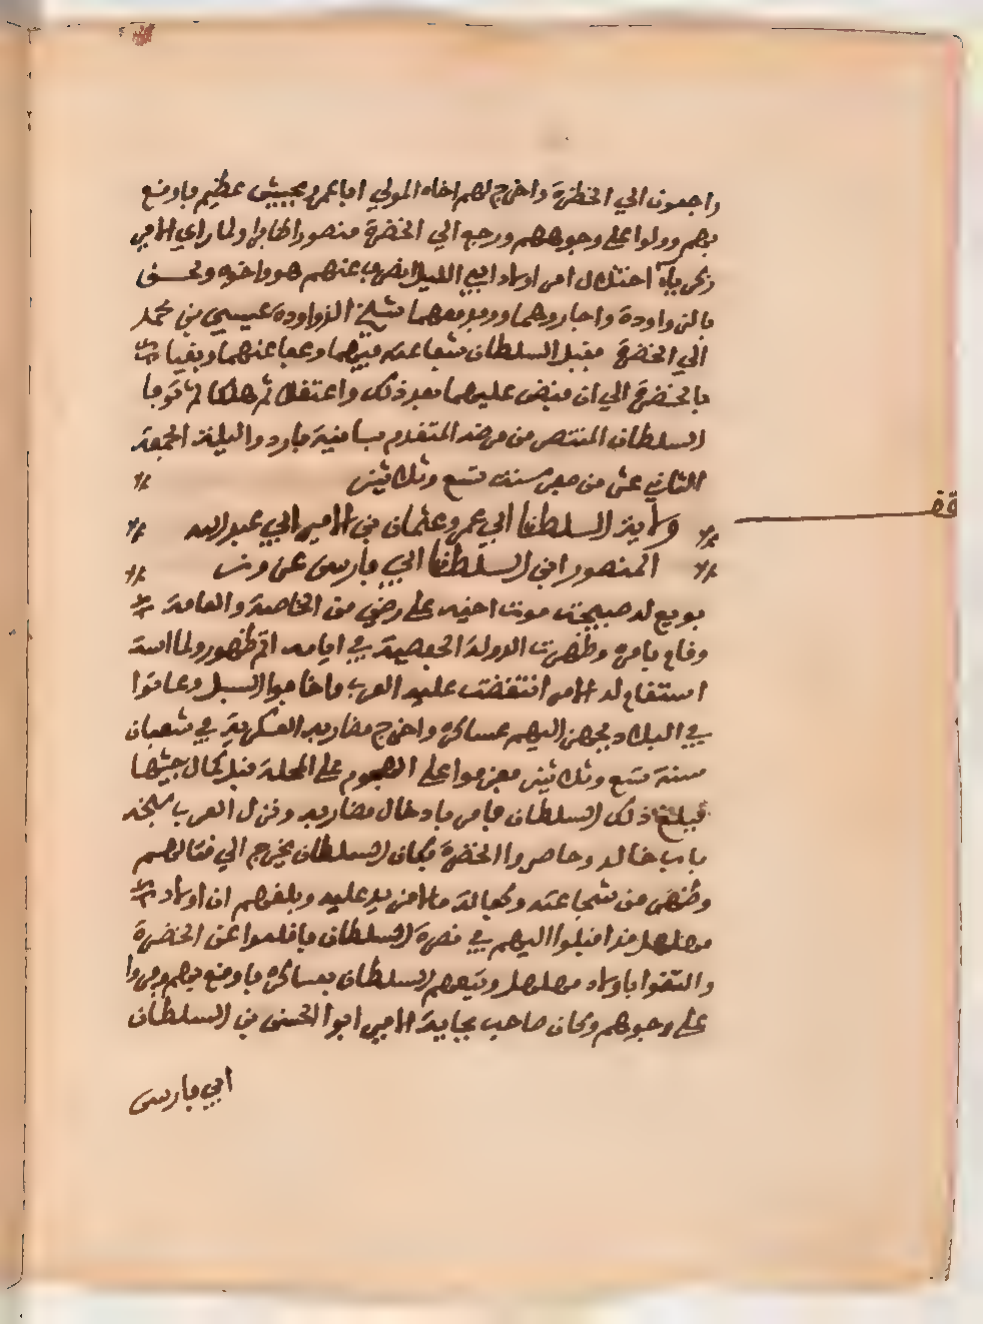 راجعون الي الحظرة واخرج لهم اخاه المولي ابا عمرو بجيش عظيم فاوقع
بهم وولوا علي وجوههم ورجع الي الحضرة منصورا ظافرا ولما راي الامير
زكرياء اختلال امر اولاد ابي الليل انصرف عنهم هو واخوه ولحق
بالزواودة واجاروهما ووفد معهما شيخ الزواودة عيسي بن محمد
الي الحضرة فقبل السلطان شفاعته فيهما وعفا عنهما وبقيا
بالحضرة الي ان قبض عليهما بعد ذلك واعتقلا ثم هلكا ثم توفا
السلطان المنتصر من مرضه المتقدم بسانية باردو اليلة الجمعة
الثاني عشر من صفر سنة تسع وثلاثين
ولاية السلطان ابي عمرو عثمان بن الامير ابي عبد الله
المنصور ابن السلطان ابي فارس عزوز
بويع له صبيحة موت اخيه علي رضي من الخاصة والعامة
وقام بامره وظهرت الدولة الحفصية في ايامه اتم ظهور ولما استه
استقام له الامر انتقضت عليه العرب واخافوا السبل وعاثوا
في البلاد فجهز اليهم عساكره واخرج مضاربه العسكرية في شعبان
سنة تسع وثلاثين فعزموا علي الهجوم علي المحلة قبل كمال جيشها
فبلغ ذلك السلطان فامر بادخال مضاربه ونزل العرب بسبخة
باب خالد وحاصروا الحضرة فكان السلطان يخرج الي قتالهم
وظهر من شجاعته وكماله مالا مزيد عليه وبلغهم ان اولاد
مهلهل قد اقبلوا اليهم في نصرة السلطان فاقلعوا عن الحضرة
والتقوا باولاد مهلهل وتبعهم السلطان بعساكره فاوقع بهم وفروا
علي وجوههم وكان صاحب بجاية الامير ابو الحسن بن السلطان
ابي فارس